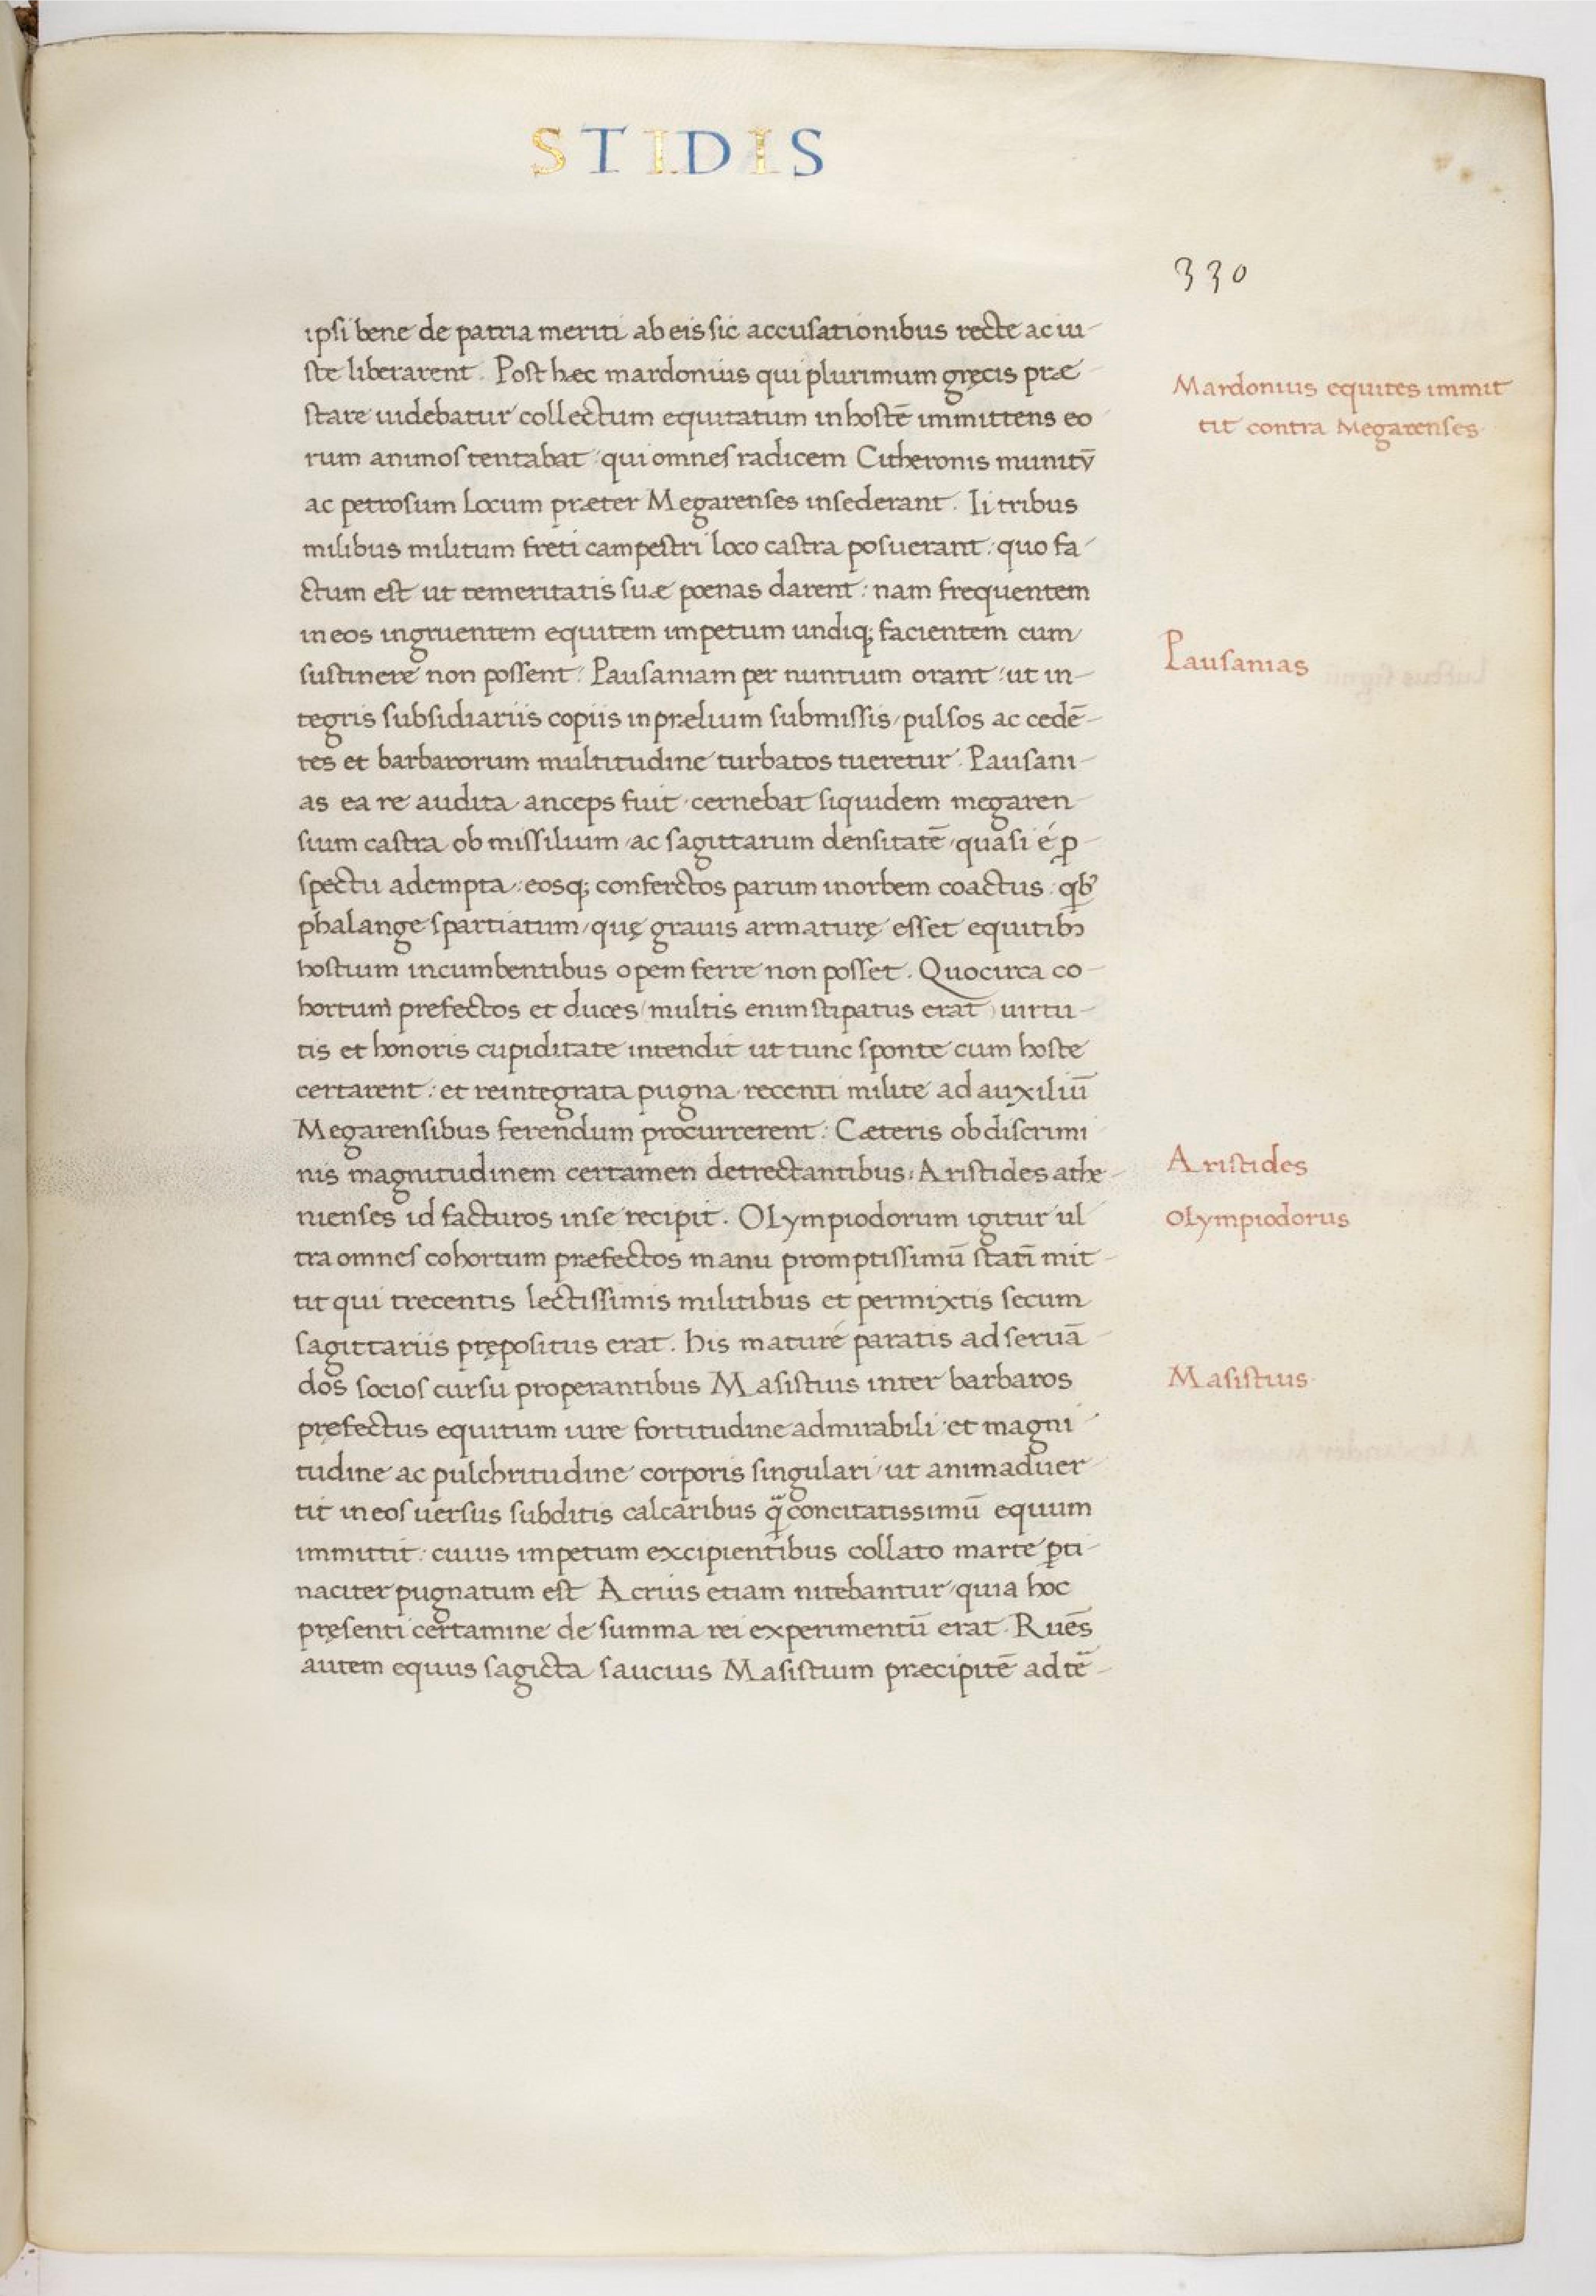 STIDIS
330
ipsi bene de patria meriti ab eis sic accusationibus recte ac iu-
ste liberarent. Post hæc mardonius qui plurimum gręcis præ
stare uidebatur collectum equitatum in hostē immittens eo
rum animos tentabat: qui omnes radicem Citheronis munitū
ac petrosum locum præter Megarenses insederant. Ii tribus
milibus militum freti campestri loco castra posuerant: quo fa
ctum est ut temeritatis suæ poenas darent: nam frequentem
in eos ingruentem equitem impetum undiq; facientem cum
sustinere non possent: Pausaniam per nuntium orant: ut in-
tegris subsidiariis copiis in prælium submissis/pulsos ac cedē-
tes et barbarorum multitudine turbatos tueretur. Pausani-
as ea re audita anceps fuit. cernebat siquidem megaren
sium castra ob missilium/ac sagittarum densitatē/quasi é ꝑ-
spectu adempta: eosq; confertos parum in orbem coactus: qb᷒
phalange spartiatum/quę grauis armaturę esset equitib᷒
hostium incumbentibus opem ferre non posset. Quocirca co-
hortum prefectos et duces/multis enim stipatus erat) uirtu-
tis et honoris cupiditate intendit ut tunc sponte cum hoste
certarent: et reintegrata pugna recenti milite ad auxiliū
Megarensibus ferendum procurrerent: Cæteris ob discrimi
nis magnitudinem certamen detrectantibus: Aristides athe-
nienses id facturos in se recipit. Olympiodorum igitur ul
tra omnes cohortum præfectos manu promptissimū statī mit-
tit qui trecentis lectissimis militibus et permixtis secum
sagittariis prępositus erat. his maturé paratis ad seruā-
dos socios cursu properantibus Masistius inter barbaros
pręfectus equitum iure fortitudine admirabili et magni
tudine ac pulchritudine corporis singulari/ut animaduer
tit in eos uersus subditis calcaribus q̃ concitatissimū equum
immittit: cuius impetum excipientibus collato marte ꝑti-
naciter pugnatum est Acrius etiam nitebantur/quia hoc
pręsenti certamine de summa rei experimentū erat. Ruēs
autem equus sagicta saucius Masistium præcipitē ad tē-
Mardonius equites immit
tit contra Megarenses.
Pausanias
Aristides
Olympiodorus
Masistius.